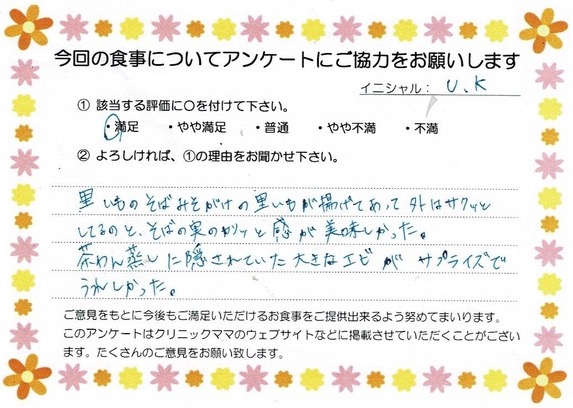 今回の食事についてアンケートにご協力をお願いします
イニシャル： U.K
① 該当する評価に○を付けて下さい。
・満足 ・やや満足 ・普通 ・やや不満 ・不満
② よろしければ、①の理由をお聞かせ下さい。
里いものそばみそがけの里いもが揚げてあって外はサクッと
してるのと、そばの実のカリッと感が美味しかった。
茶わん蒸しに隠されていた大きなエビがサプライズで
うれしかった。
ご意見をもとに今後もご満足いただけるお食事をご提供出来るよう努めてまいります。
このアンケートはクリニックママのウェブサイトなどに掲載させていただくことがござい
ます。たくさんのご意見をお願い致します。